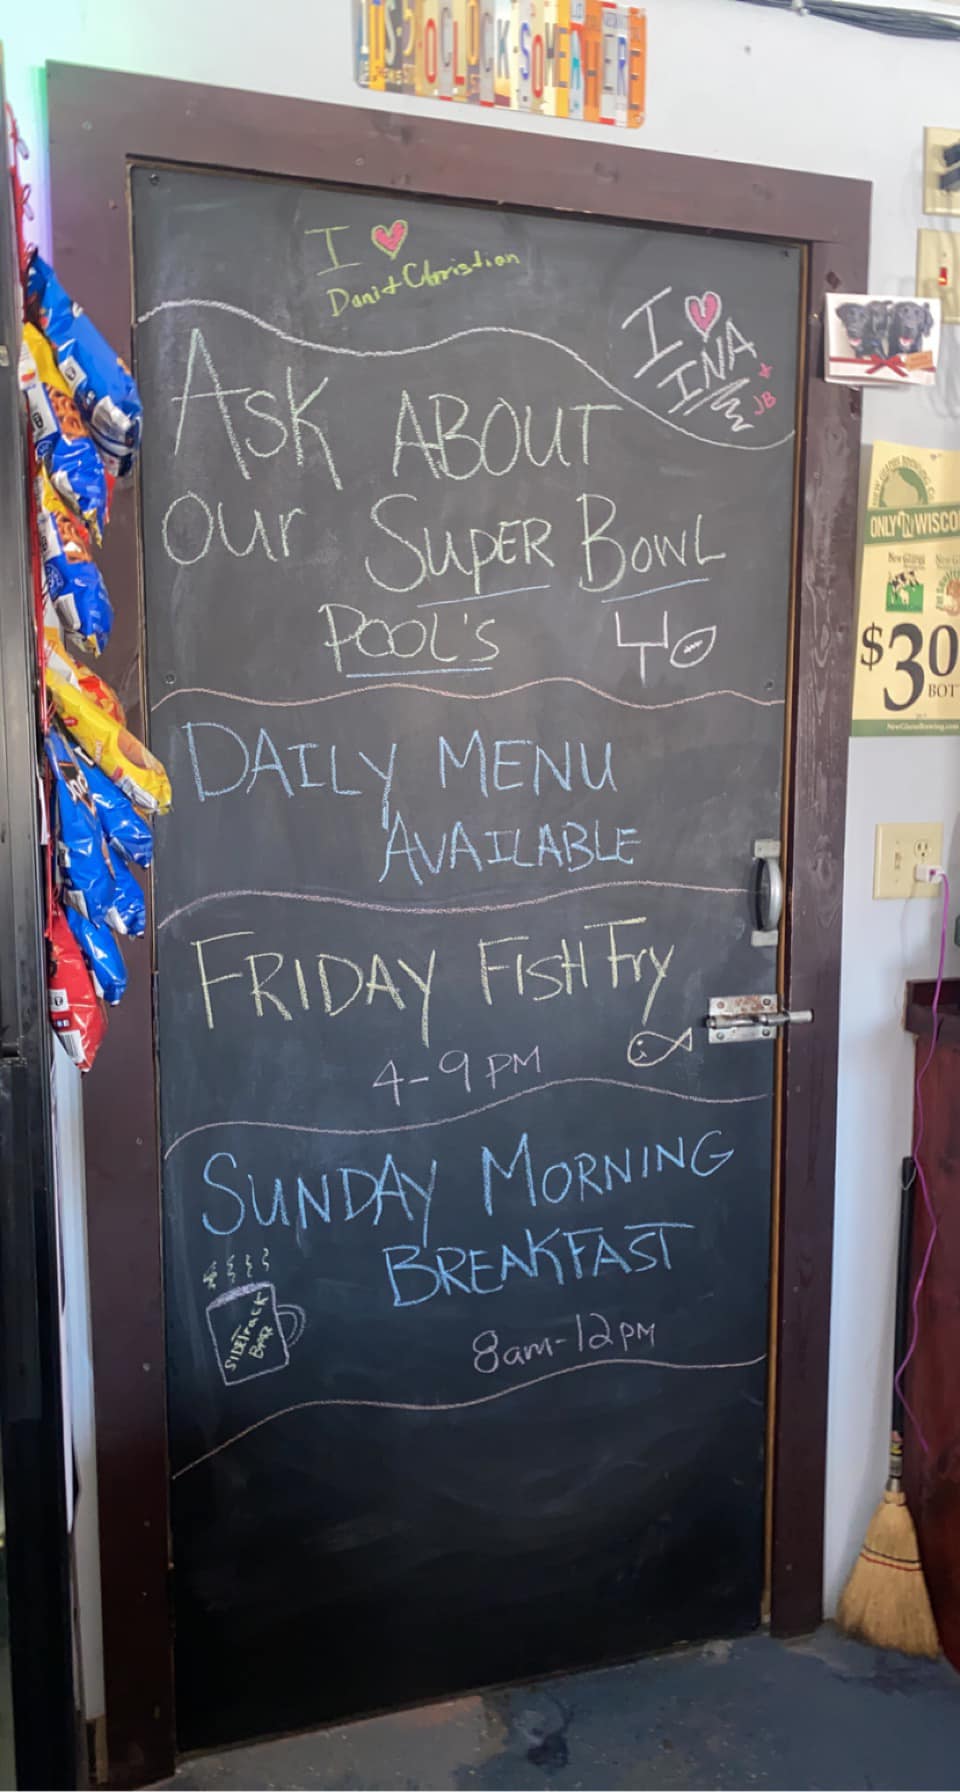 IT'S 5 O'CLOCK SOMEWHERE
I
Dani + Christian
I
INA
+
JB
Ask ABOUT
our SUPER BOWL
POOL'S
DAILY MENU
AVAILABLE
FRIDAY FISH Fry
4-9 PM
SUNDAY MORNING
BREAKFAST
SIDETrack
BAR
8am-12PM
ONLY IN WISCO
New Glarus
$30
BOT
NewGlarusBrewing.com